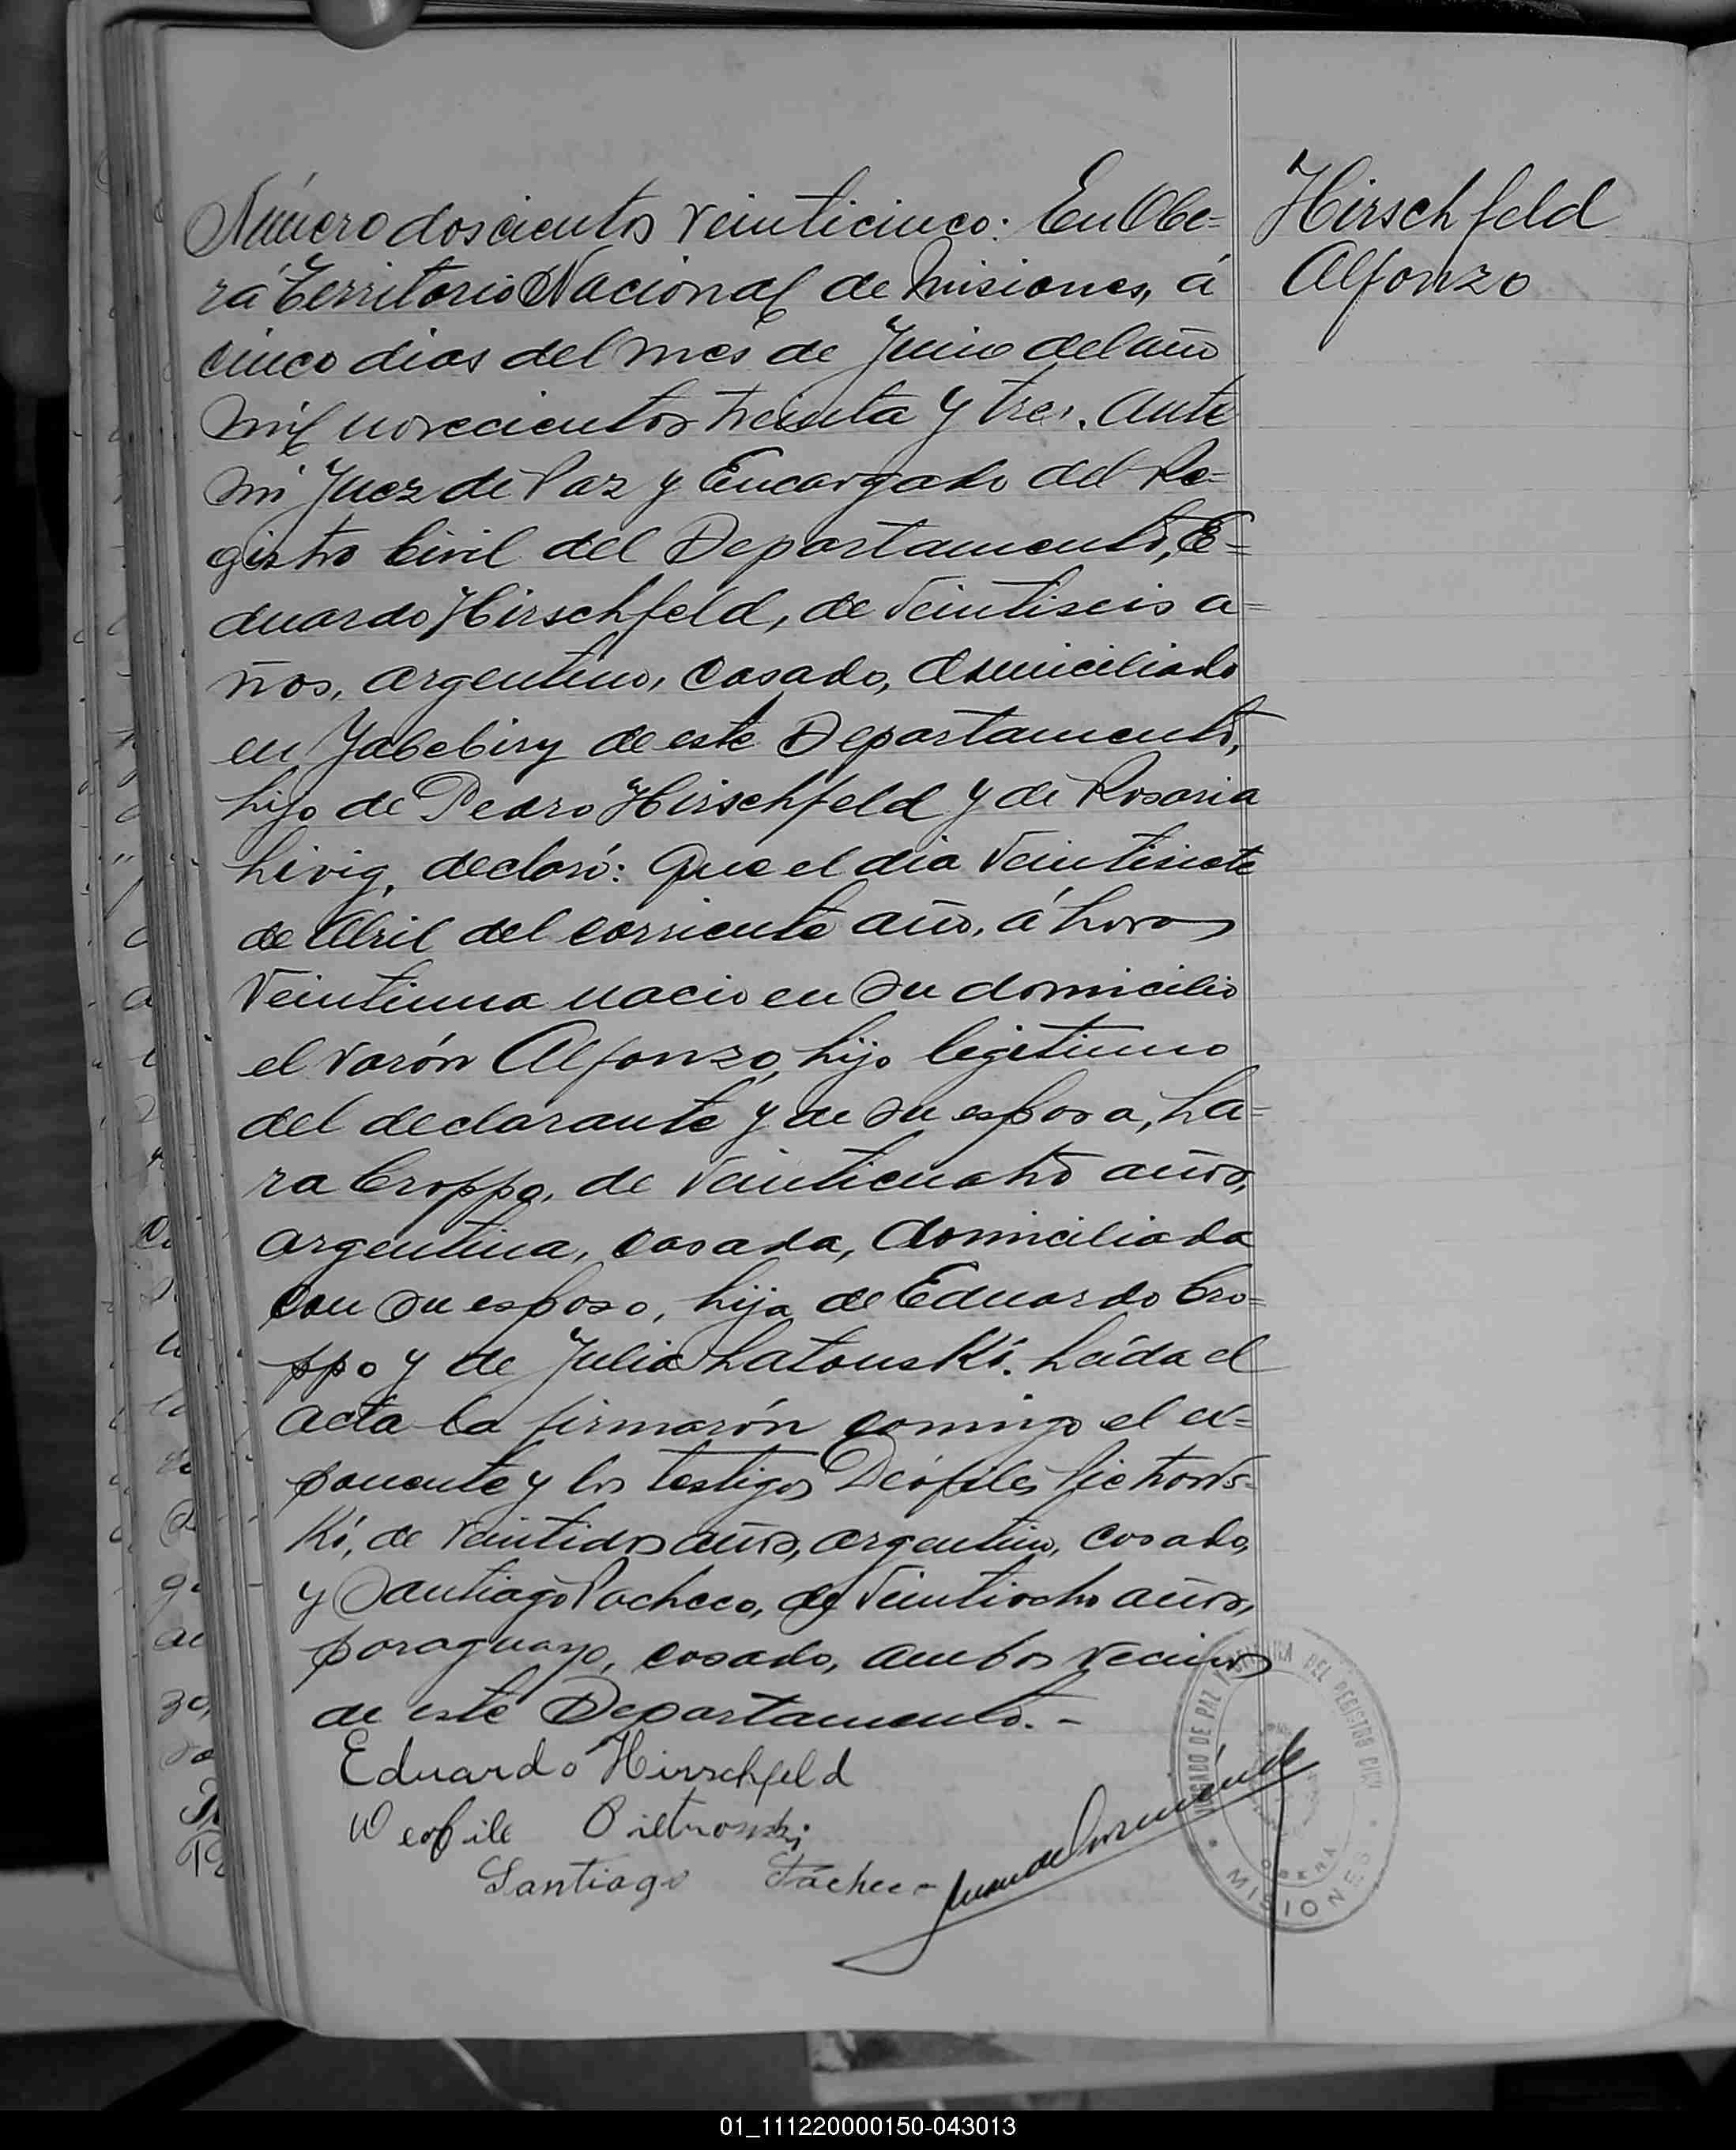 Número doscientos veinticinco: En Obe-
rá Territorio Nacional de Misiones, á
cinco dias del mes de Junio del año
mil novecientos treinta y tres. Ante
mi Juez de Paz y Encargado del Re-
gistro Civil del Departamento, E-
duardo Hirschfeld, de veintiseis a-
ños, argentino, casado, domiciliado
en Yabebiry de este Departamento,
hijo de Pedro Hirschfeld y de Rosaria
Livig, declaró: Que el dia veintisiete
de Abril del corriente año, á horas
veintiuna nacio en su domicilio
el varón Alfonzo, hijo legitimo
del declarante y de su esposa, La-
ra Croppo, de veinticuatro años,
argentina, casada, domiciliada
con su esposo, hija de Eduardo Cro-
ppo y de Julia Latouski. Leída el
acta la firmarón comigo el ex-
ponente y los testigos Deófiles Pietrows-
ki, de veintidos años, argentino, casado,
y Santiago Pacheco, de veintiocho años,
paraguayo, casado, ambos vecinos
de este Departamento.-
Hirschfeld
Alfonzo
Eduardo Hirschfeld
Weofile Pietrowski
Santiago Pacheco
JUZGADO DE PAZ Y OFICINA DEL REGISTRO CIVIL
OBERÁ
MISIONES
01_111220000150-043013